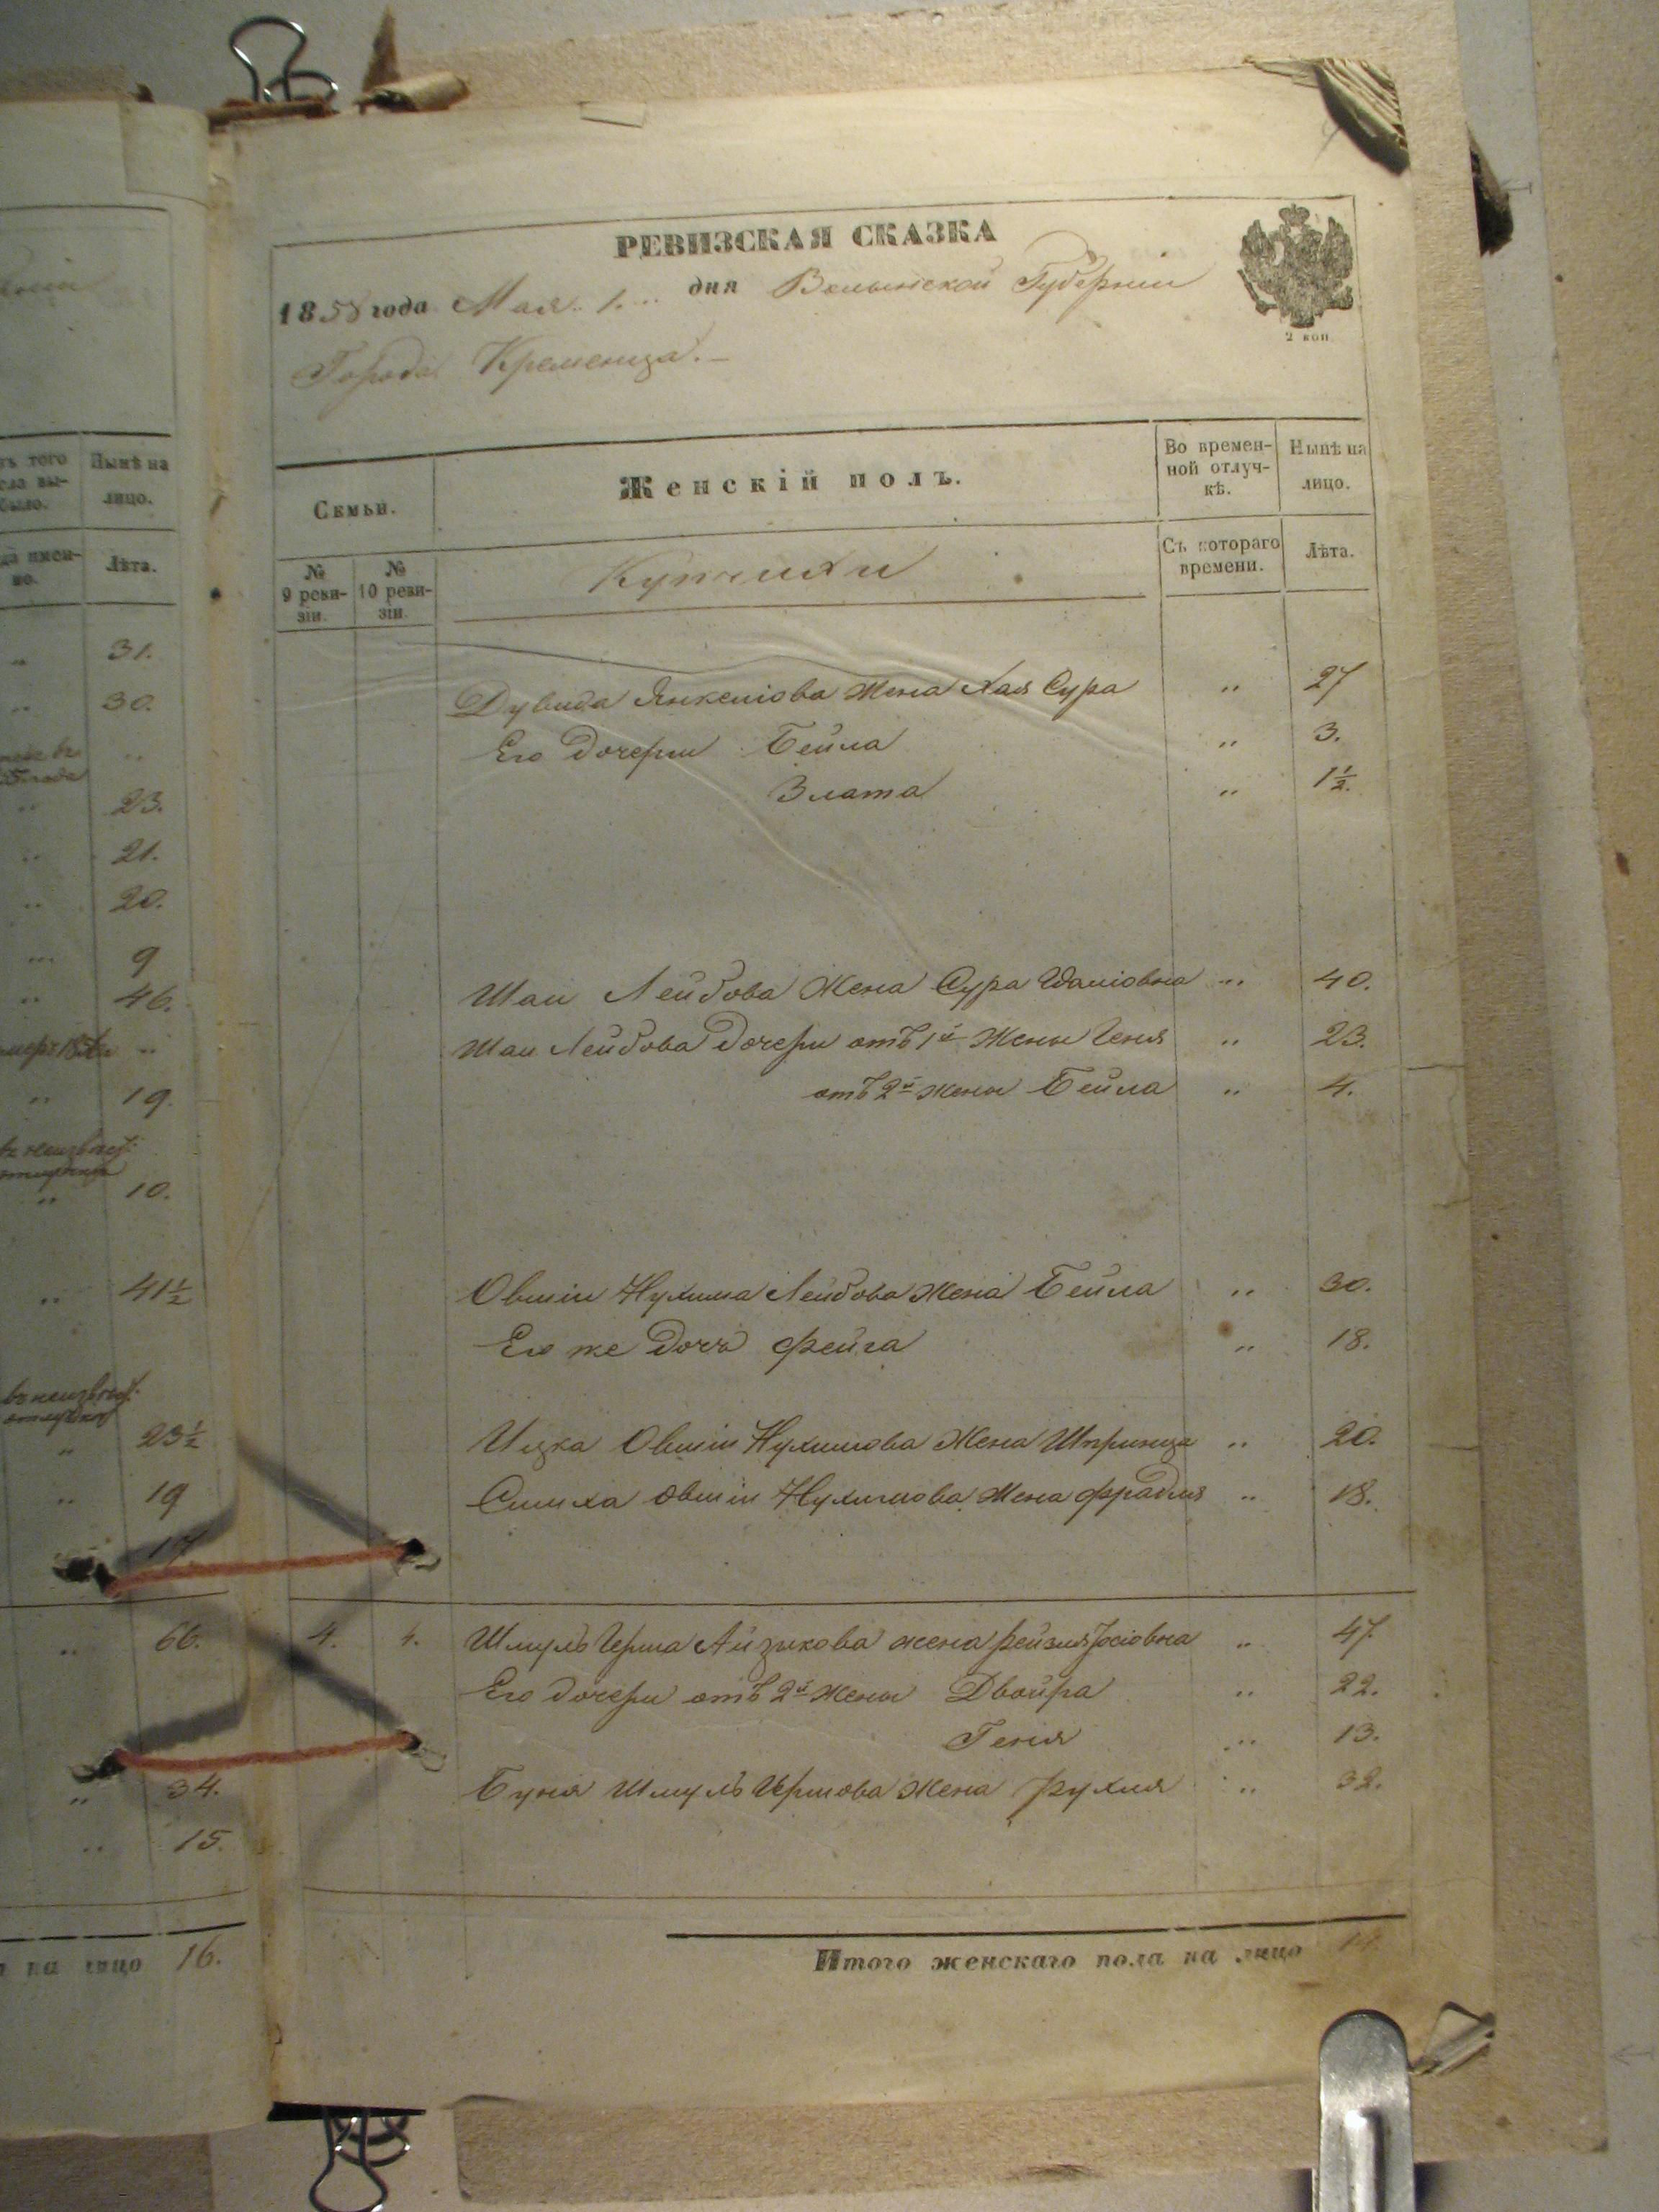 РЕВИЗСКАЯ СКАЗКА
1858 года Мая 1 дня Волынской Губерніи
Города Кременца.
2 коп
Семьи.
Женскій полъ.
Во времен-
ной отлуч-
кѣ.
Нынѣ на
лицо.
№
9 реви-
зіи.
№
10 реви-
зіи.
Купчихи
Съ котораго
времени.
Лѣта.
Дувида Янкеліова жена Хая Сура " 27
Его дочери Бейла " 3.
Злата " 1½.
Шаи Лейбова жена Сура " 40.
Шаи Лейбова дочери отъ 1й жены Геня " 23.
отъ 2й жены Бейла " 4.
Овшіи Нухима Лейбова жена Бейла " 30.
Его же дочь Фейга " 18.
Ицка Овшіи Нухимова жена Шпринца " 20.
Симха Овшіи Нухимова жена Фрадля " 18.
4. 4. Шмуль Герша Айзикова жена Рейзля Іосіовна " 47.
Его дочери отъ 2й жены Двойра " 22.
Геня " 13.
Буня Шмуль Гершова жена Рухля " 32.
Итого женскаго пола на лицо 14.
того
Нынѣ на
лицо.
Лѣта.
" 31.
" 30.
"
" 23.
" 21.
" 20.
" 9
" 46.
"
" 19.
" 10.
" 41½
" 23½
" 19
17
" 66.
" 34.
" 15.
на лицо 16.